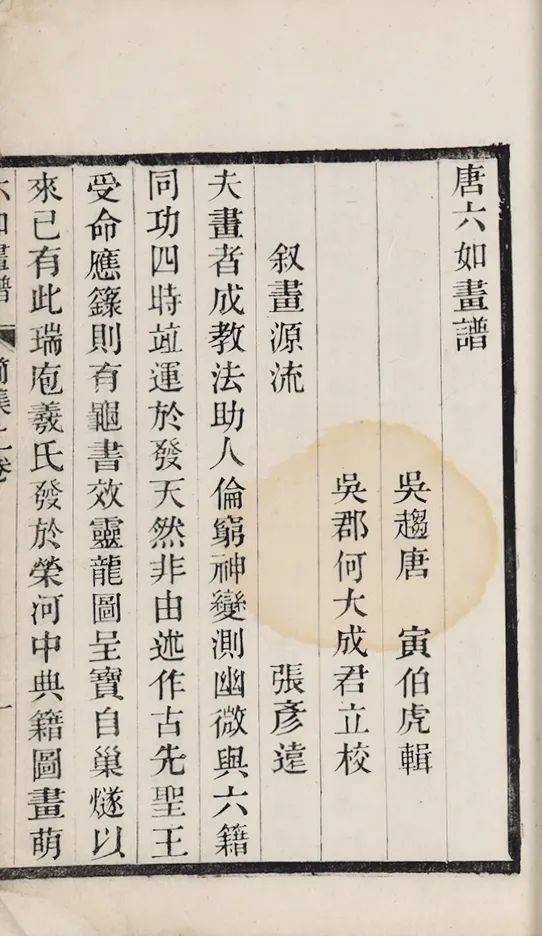 唐六如畫譜
吳趨唐　寅伯虎輯
吳郡何大成君立校
叙畫源流　張彥遠
夫畫者成教法助人倫窮神變測幽微與六籍
同功四時竝運於發天然非由述作古先聖王
受命應籙則有龜書效靈龍圖呈寶自巢燧以
來已有此瑞庖羲氏發於榮河中典籍圖畫萌
六如畫譜